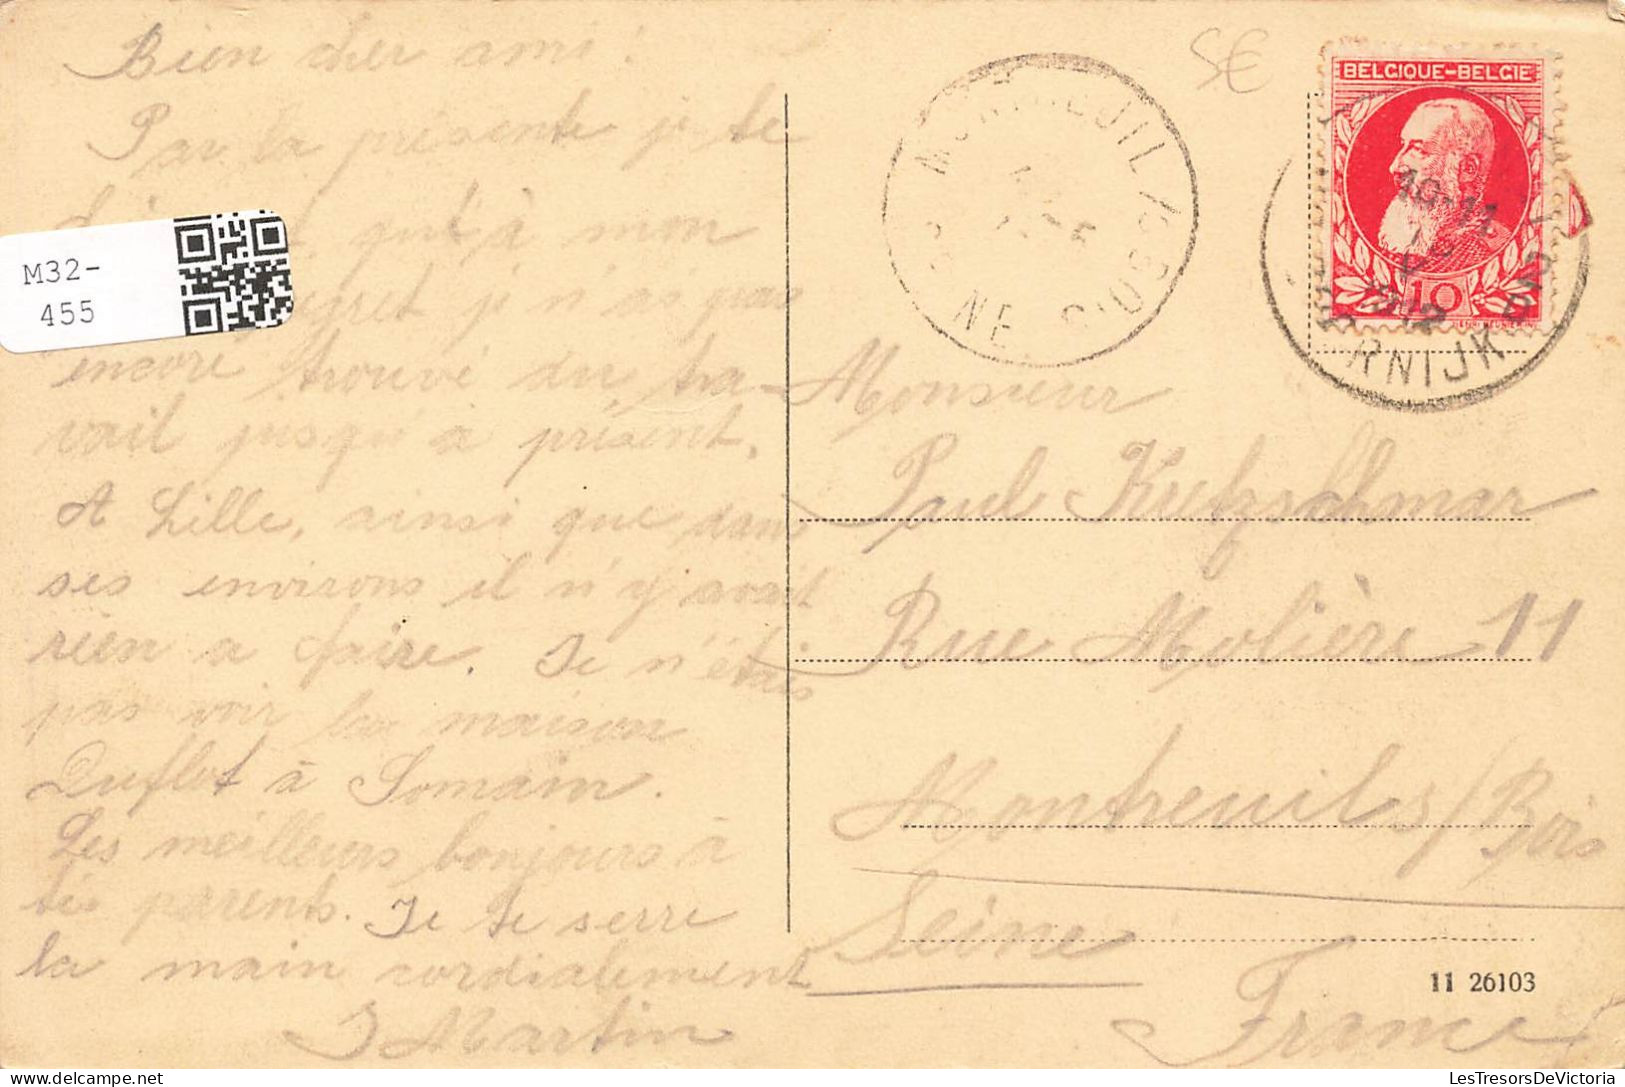 Bien cher ami !
Par la présente je te
qu'à mon
regret je n'ai pas
encore trouvé du tra-
vail jusqu'à présent.
A Lille, ainsi que dans
ses environs il n'y avait
rien a faire. Je n'étais
pas voir la maison
Duflot à Somain.
Les meilleurs bonjours à
tes parents. Je te serre
la main cordialement
J Martin
M32-
455
5€
BELGIQUE-BELGIE
10
10-11
RNIJK
Monsieur
Paul Kretzschmar
Rue Molière 11
Montreuil s/Bois
Seine
France
11 26103
LesTresorsDeVictoria